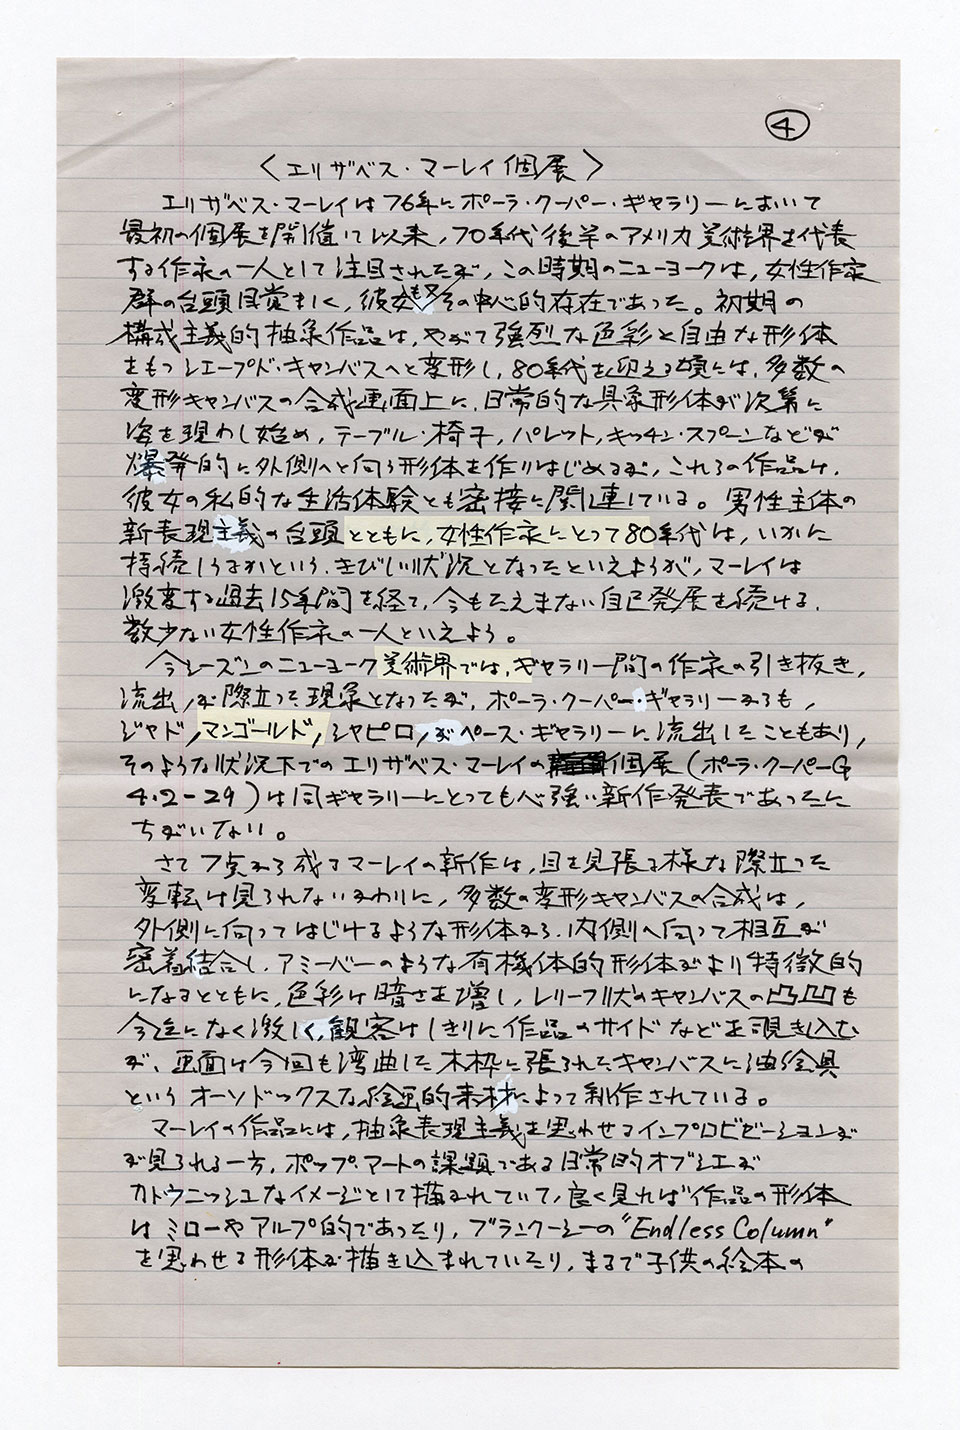 ④
〈エリザベス・マーレイ個展〉
エリザベス・マーレイは76年にポーラ・クーパー・ギャラリーにおいて
最初の個展を開催して以来，70年代後半のアメリカ美術界を代表
する作家の一人として注目されたが，この時期のニューヨークは，女性作家
群の台頭目覚ましく，彼女もその中心的存在であった。初期の
構成主義的抽象作品は，やがて強烈な色彩と自由な形体
をもつシェープド・キャンバスへと変形し，80年代を迎える頃には，多数の
変形キャンバスの合成画面上に，日常的な具象形体が次第に
姿を現わし始め，テーブル・椅子，パレット，キッチン・スプーンなどが
爆発的に外側へと向う形体を作りはじめるが，これらの作品は，
彼女の私的な生活体験とも密接に関連している。男性主体の
新表現主義の台頭とともに，女性作家にとって80年代は，いかに
持続しうるかという，きびしい状況となったといえようが，マーレイは
激変する過去15年間を経て，今もたえまない自己発展を続ける，
数少ない女性作家の一人といえよう。
今シーズンのニューヨーク美術界では，ギャラリー間の作家の引き抜き，
流出，が際立った現象となったが，ポーラ・クーパー・ギャラリーからも，
ジャド，マンゴールド，シャピロ，がペース・ギャラリーに流出したこともあり，
そのような状況下でのエリザベス・マーレイの個展（ポーラ・クーパーG
4.2-29）は同ギャラリーにとっても心強い新作発表であったに
ちがいない。
さて7点から成るマーレイの新作は，目を見張る様な際立った
変転は見られないかわりに，多数の変形キャンバスの合成は，
外側に向ってはじけるような形体から，内側へ向って相互が
密着結合し，アミーバーのような有機体的形体がより特徴的
になるとともに，色彩は暗さを増し，レリーフ状のキャンバスの凸凹も
今迄になく激しく，観客はしきりに作品のサイドなどを覗き込む
が，画面は今回も湾曲した木枠に張られたキャンバスに油絵具
という オーソドックスな絵画的素材によって制作されている。
マーレイの作品には，抽象表現主義を思わせるインプロビゼーションが
が見られる一方，ポップ・アートの課題である日常的オブジェが
カトゥニッシュなイメージとして描かれていて，良く見れば作品の形体
は ミローやアルプ的であったり，ブランクーシーの“Endless Column”
を思わせる形体が描き込まれていたり，まるで子供の絵本の